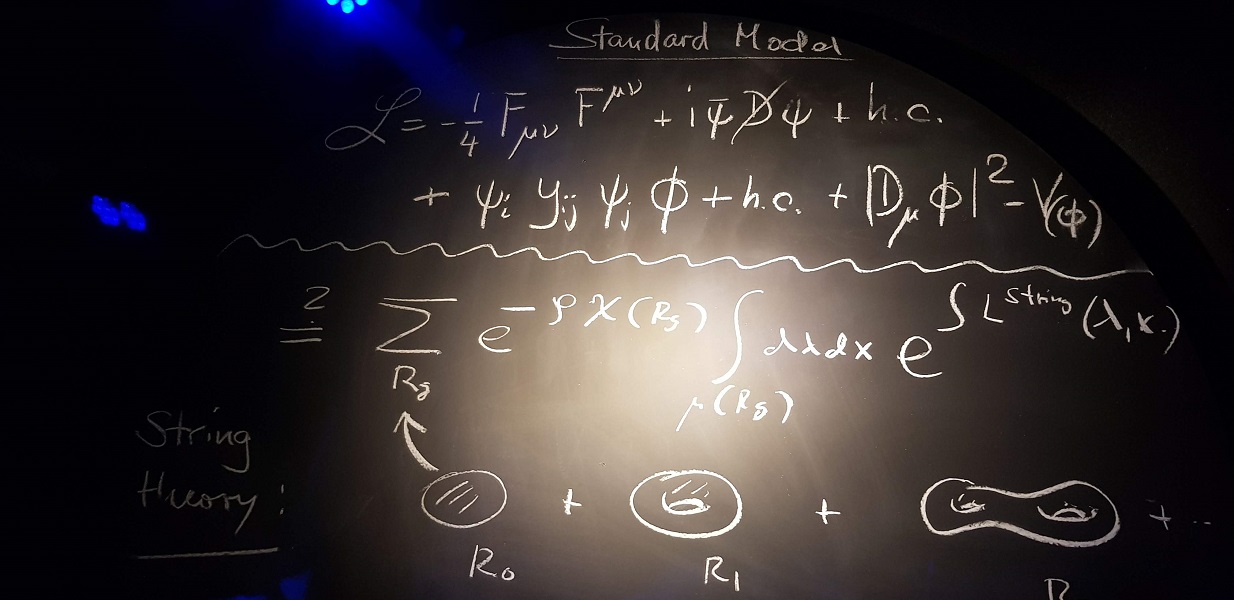 Standard Model
ℒ = -1/4 F_μν F^μν + i ψ̄ D̸ ψ + h.c.
+ ψ_i y_ij ψ_j φ + h.c. + |D_μ φ|² - V(φ)
≟ Σ_{R_g} e^{-ρχ(R_g)} ∫_{μ(R_g)} dλdx e^{∫ L^{string}(λ,x.)}
String
Theory:
+ + + ..
R_0 R_1 R